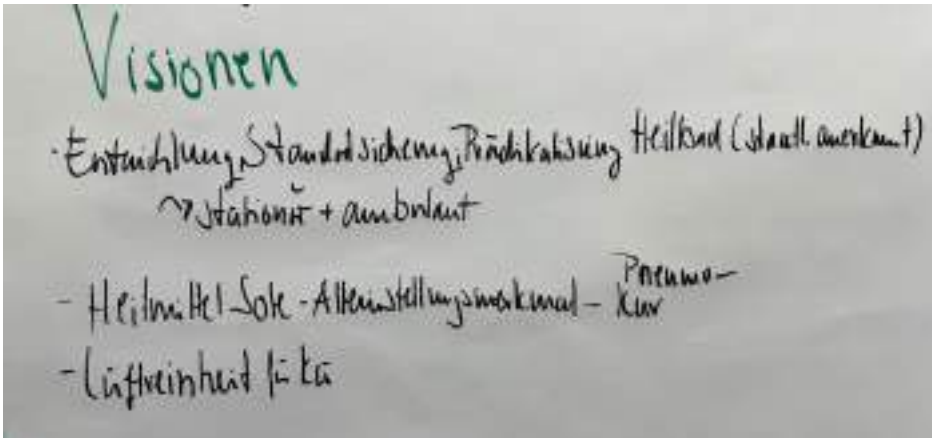 Visionen
- Entwicklung, Standortsicherung, Prädikatisierung Heilbad (staatl. anerkannt)
~> stationär + ambulant
- Heilmittel Sole - Alleinstellungsmerkmal - Pneumo-
Kur
- Luftreinheit für